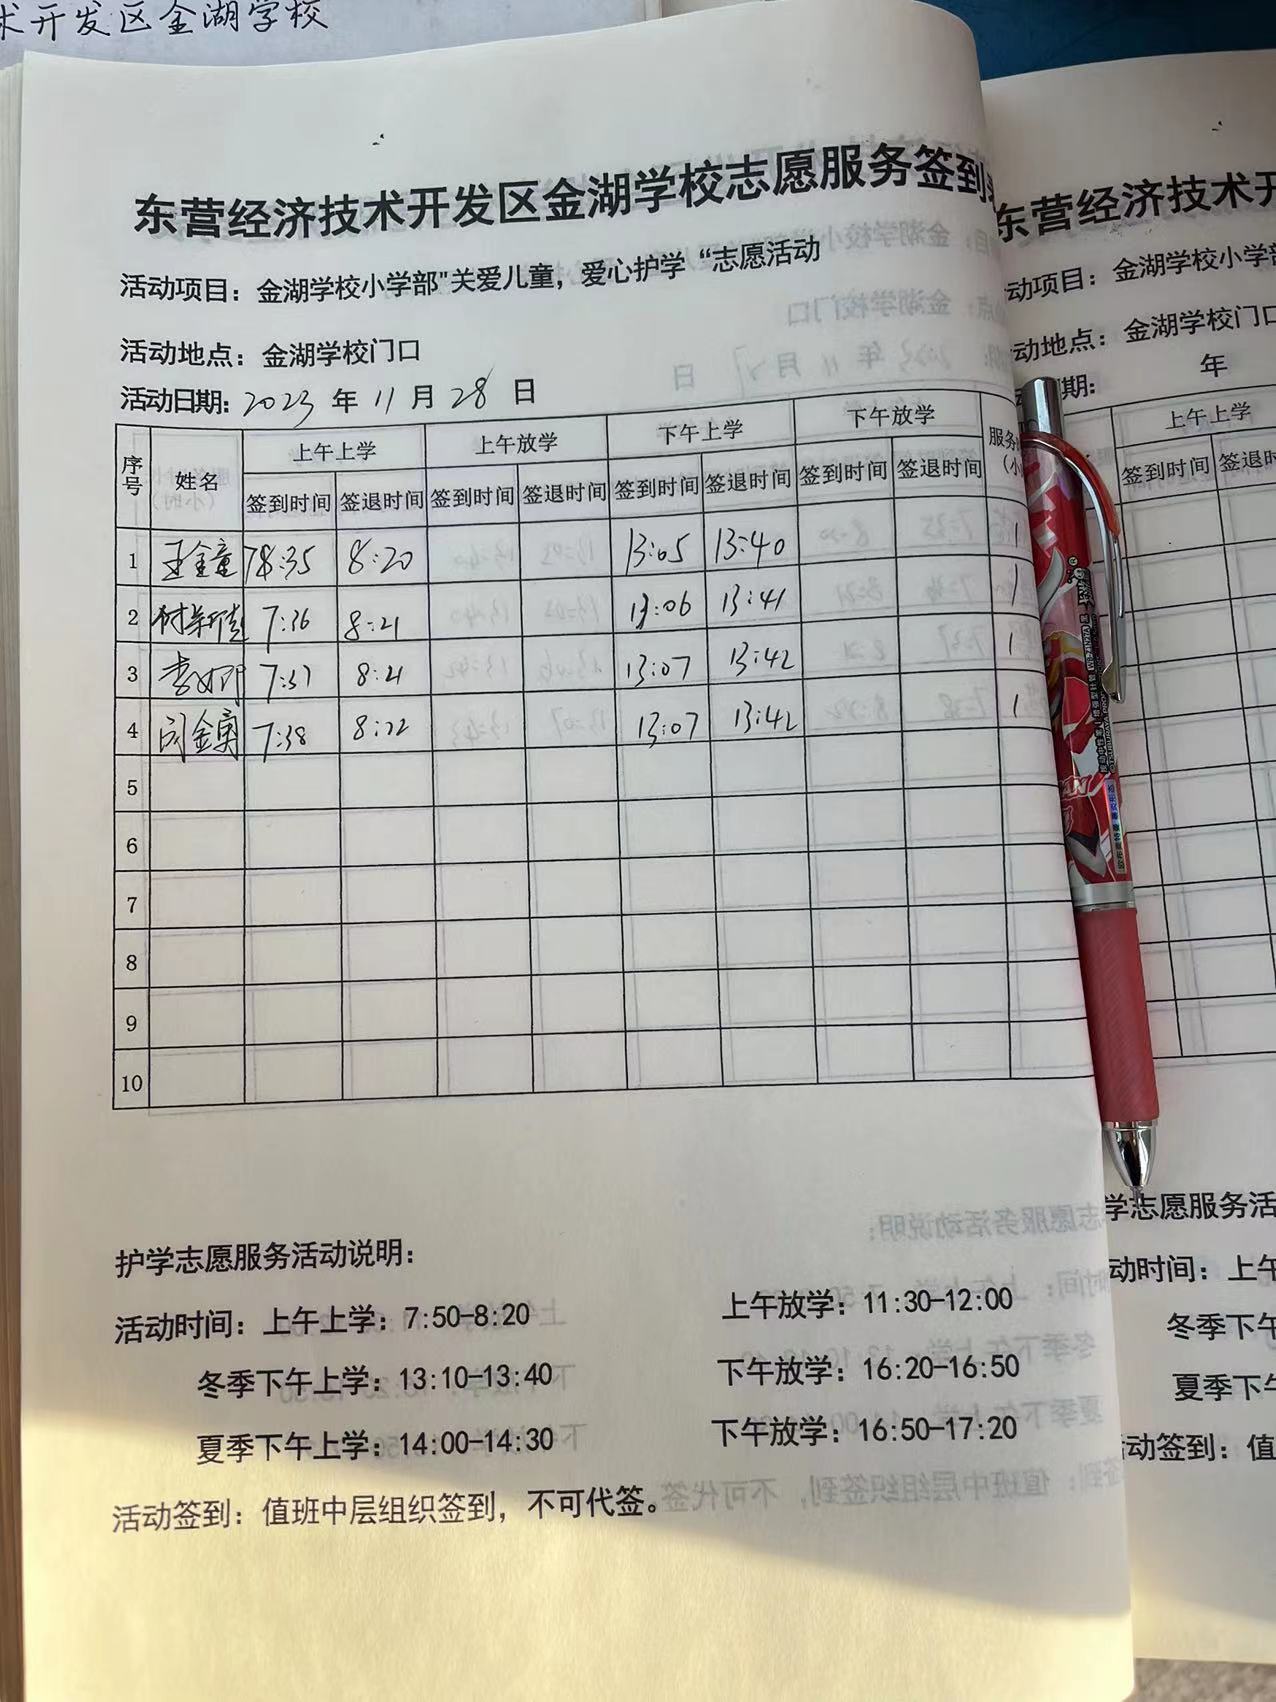 术开发区金湖学校
东营经济技术开发区金湖学校志愿服务签到
活动项目：金湖学校小学部"关爱儿童，爱心护学“志愿活动
活动地点：金湖学校门口
活动日期：2023 年 11 月 28 日
序号 姓名 上午上学 上午放学 下午上学 下午放学 服务
（小
签到时间 签退时间 签到时间 签退时间 签到时间 签退时间 签到时间 签退时间
1 王金童 :35 8:20 13:05 13:40 1
2 7:36 8:21 13:06 13:41 1
3 7:37 8:21 13:07 13:42 1
4 7:38 8:22 13:07 13:42 1
5
6
7
8
9
10
护学志愿服务活动说明：
活动时间：上午上学：7:50-8:20 上午放学：11:30-12:00
冬季下午上学：13:10-13:40 下午放学：16:20-16:50
夏季下午上学：14:00-14:30 下午放学：16:50-17:20
活动签到：值班中层组织签到，不可代签。
东营经济技术开
动项目：金湖学校小学部
动地点：金湖学校门口
期： 年
上午上学
签到时间 签退时
学志愿服务活
动时间：上午
冬季下午
夏季下午
动签到：值